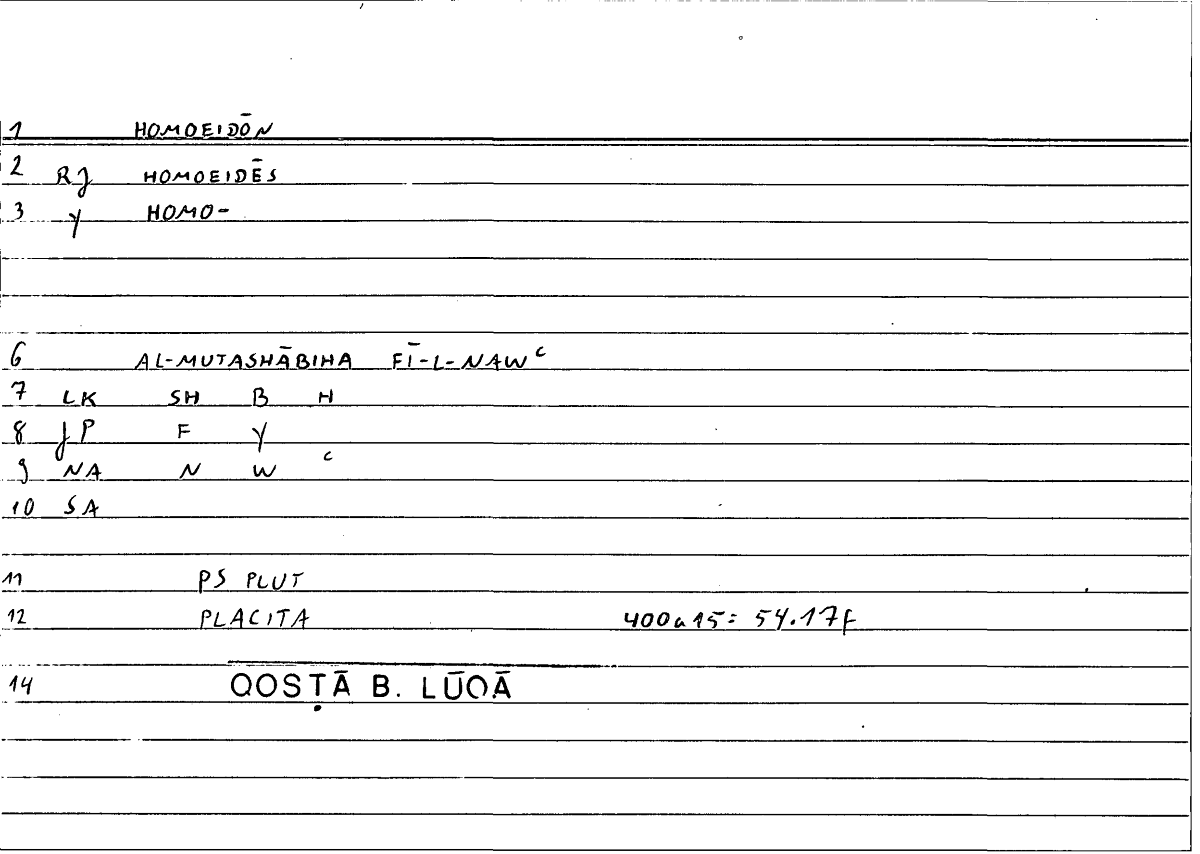 1 HOMOEIDŌN
2 RJ HOMOEIDĒS
3 Y HOMO-
6 AL-MUTASHĀBIHA FĪ-L-NAWᶜ
7 LK SH B H
8 JP F Y
9 NA N W ᶜ
10 SA
11 PS PLUT
12 PLACITA 400a15= 54.17f
14 QOSṬĀ B. LŪQĀ